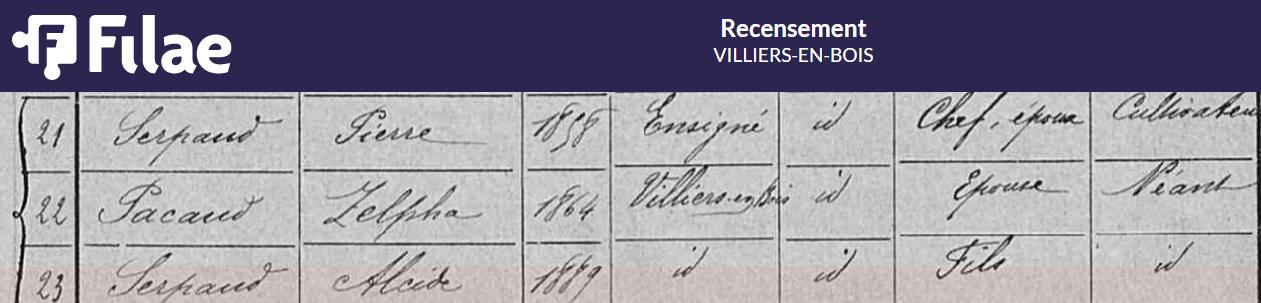 Filae
Recensement
VILLIERS-EN-BOIS
21 Serpaud Pierre 1858 Ensigné id Chef, époux Cultivateur
22 Pacaud Zelpha 1864 Villiers-en-Bois id Epouse Néant
23 Serpaud Alcide 1889 id id Fils id